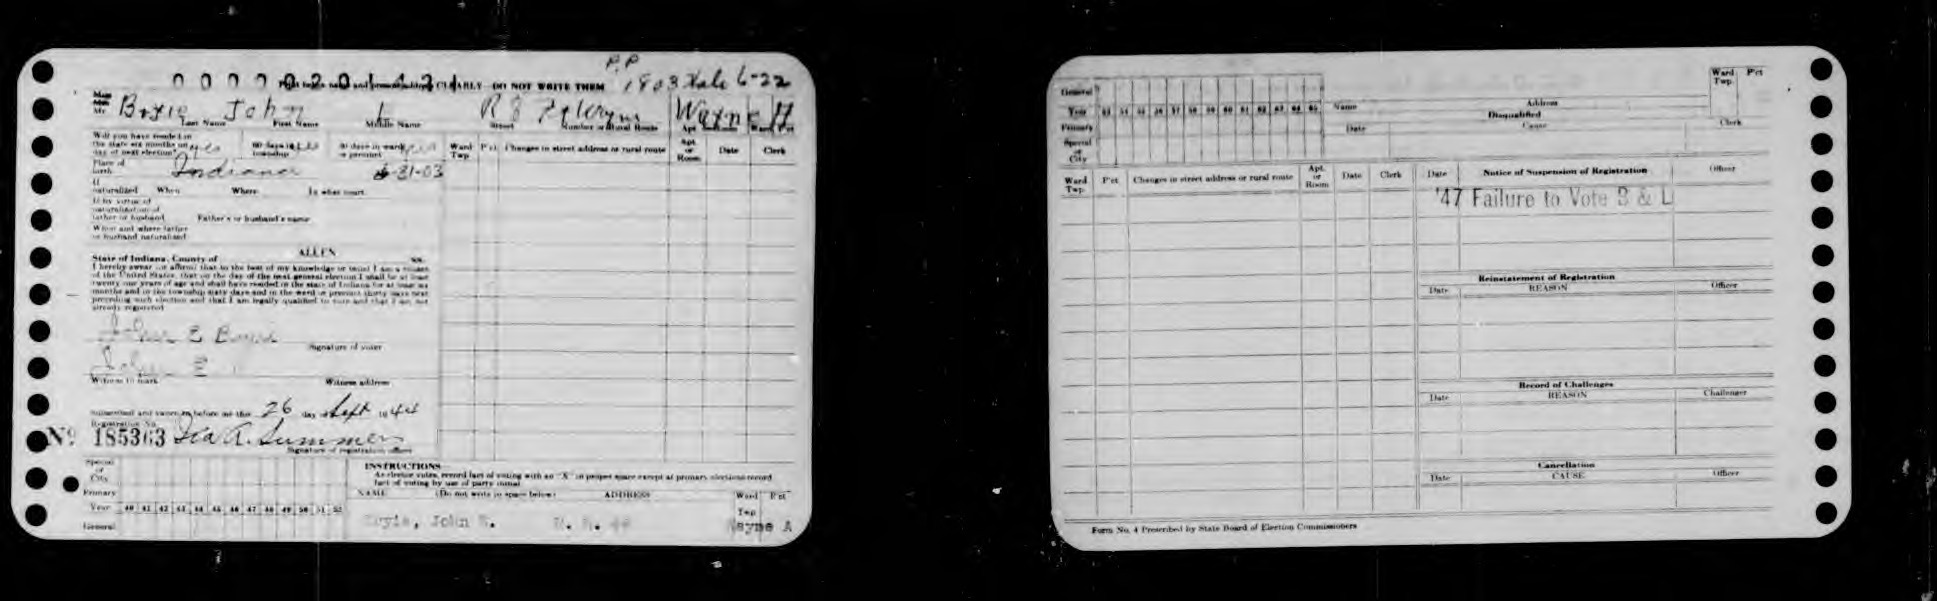 P.P.
0000020 CLEARLY—DO NOT WRITE THEM 1803 6-22
Mr. John E R 8 Wayne A
Last Name First Name Middle Name Street Number or Rural Route Apt. Ward Pct
Will you have resided in
the state six months on yes 60 days in township 30 days in ward or precinct Ward Twp. P'ct Changes in street address or rural route Apt. or Room Date Clerk
day of next election?
Place of birth Indiana -31-03
If naturalized When Where In what court
If by virtue of
naturalization of
father or husband Father's or husband's name
When and where father
or husband naturalized
ALLEN
State of Indiana, County of ss.
I hereby swear or affirm that to the best of my knowledge or belief I am a citizen
of the United States, that on the day of the next general election I shall be at least
twenty one years of age and shall have resided in the state of Indiana for at least six
months and in the township sixty days and in the ward or precinct thirty days next
preceding such election and that I am legally qualified to vote and that I am not
already registered
John E
Signature of voter
John E
Witness to mark Witness address
Subscribed and sworn to before me this 26 day of Sept 1944
Registration No.
No 185363 Ida A. Summers
Signature of registration officer
Special or City
INSTRUCTIONS
As elector votes, record fact of voting with an "X" in proper space except at primary elections record
fact of voting by use of party initial
Primary NAME (Do not write in space below) ADDRESS Ward Twp P'ct
Year 40 41 42 43 44 45 46 47 48 49 50 51 52
General John E. Wayne A
General
Year 53 54 55 56 57 58 59 60 61 62 63 64 65 Name Address Ward Twp. P'ct
Disqualified
Primary Date Cause Clerk
Special or City
Ward Twp. P'ct Changes in street address or rural route Apt. or Room Date Clerk Date Notice of Suspension of Registration Officer
'47 Failure to Vote B & L
Reinstatement of Registration
Date REASON Officer
Record of Challenges
Date REASON Challenger
Cancellation
Date CAUSE Officer
Form No. 4 Prescribed by State Board of Election Commissioners